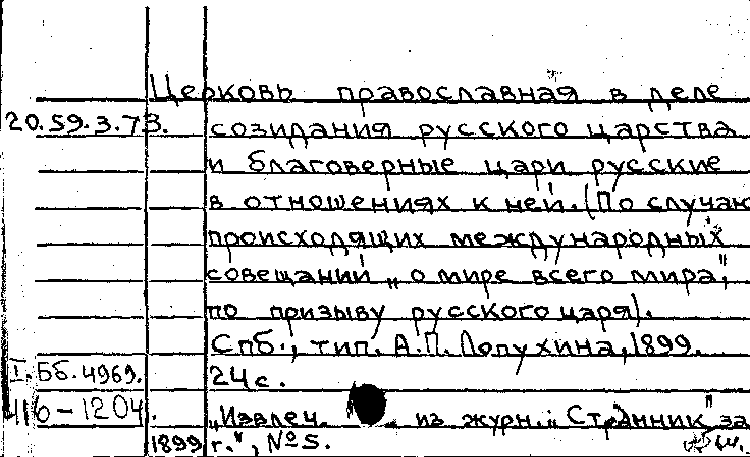 Церковь православная в деле
20.59.3.73. созидания русского царства
и благоверные цари русские
в отношениях к ней. (По случаю
происходящих международных
совещаний „о мире всего мира",
по призыву русского царя).
Спб., тип. А.П. Лопухина, 1899.
I. Бб. 4969. 24 с.
416-1204. „Извлеч. из журн. „Странник" за
1899 г.", №5.